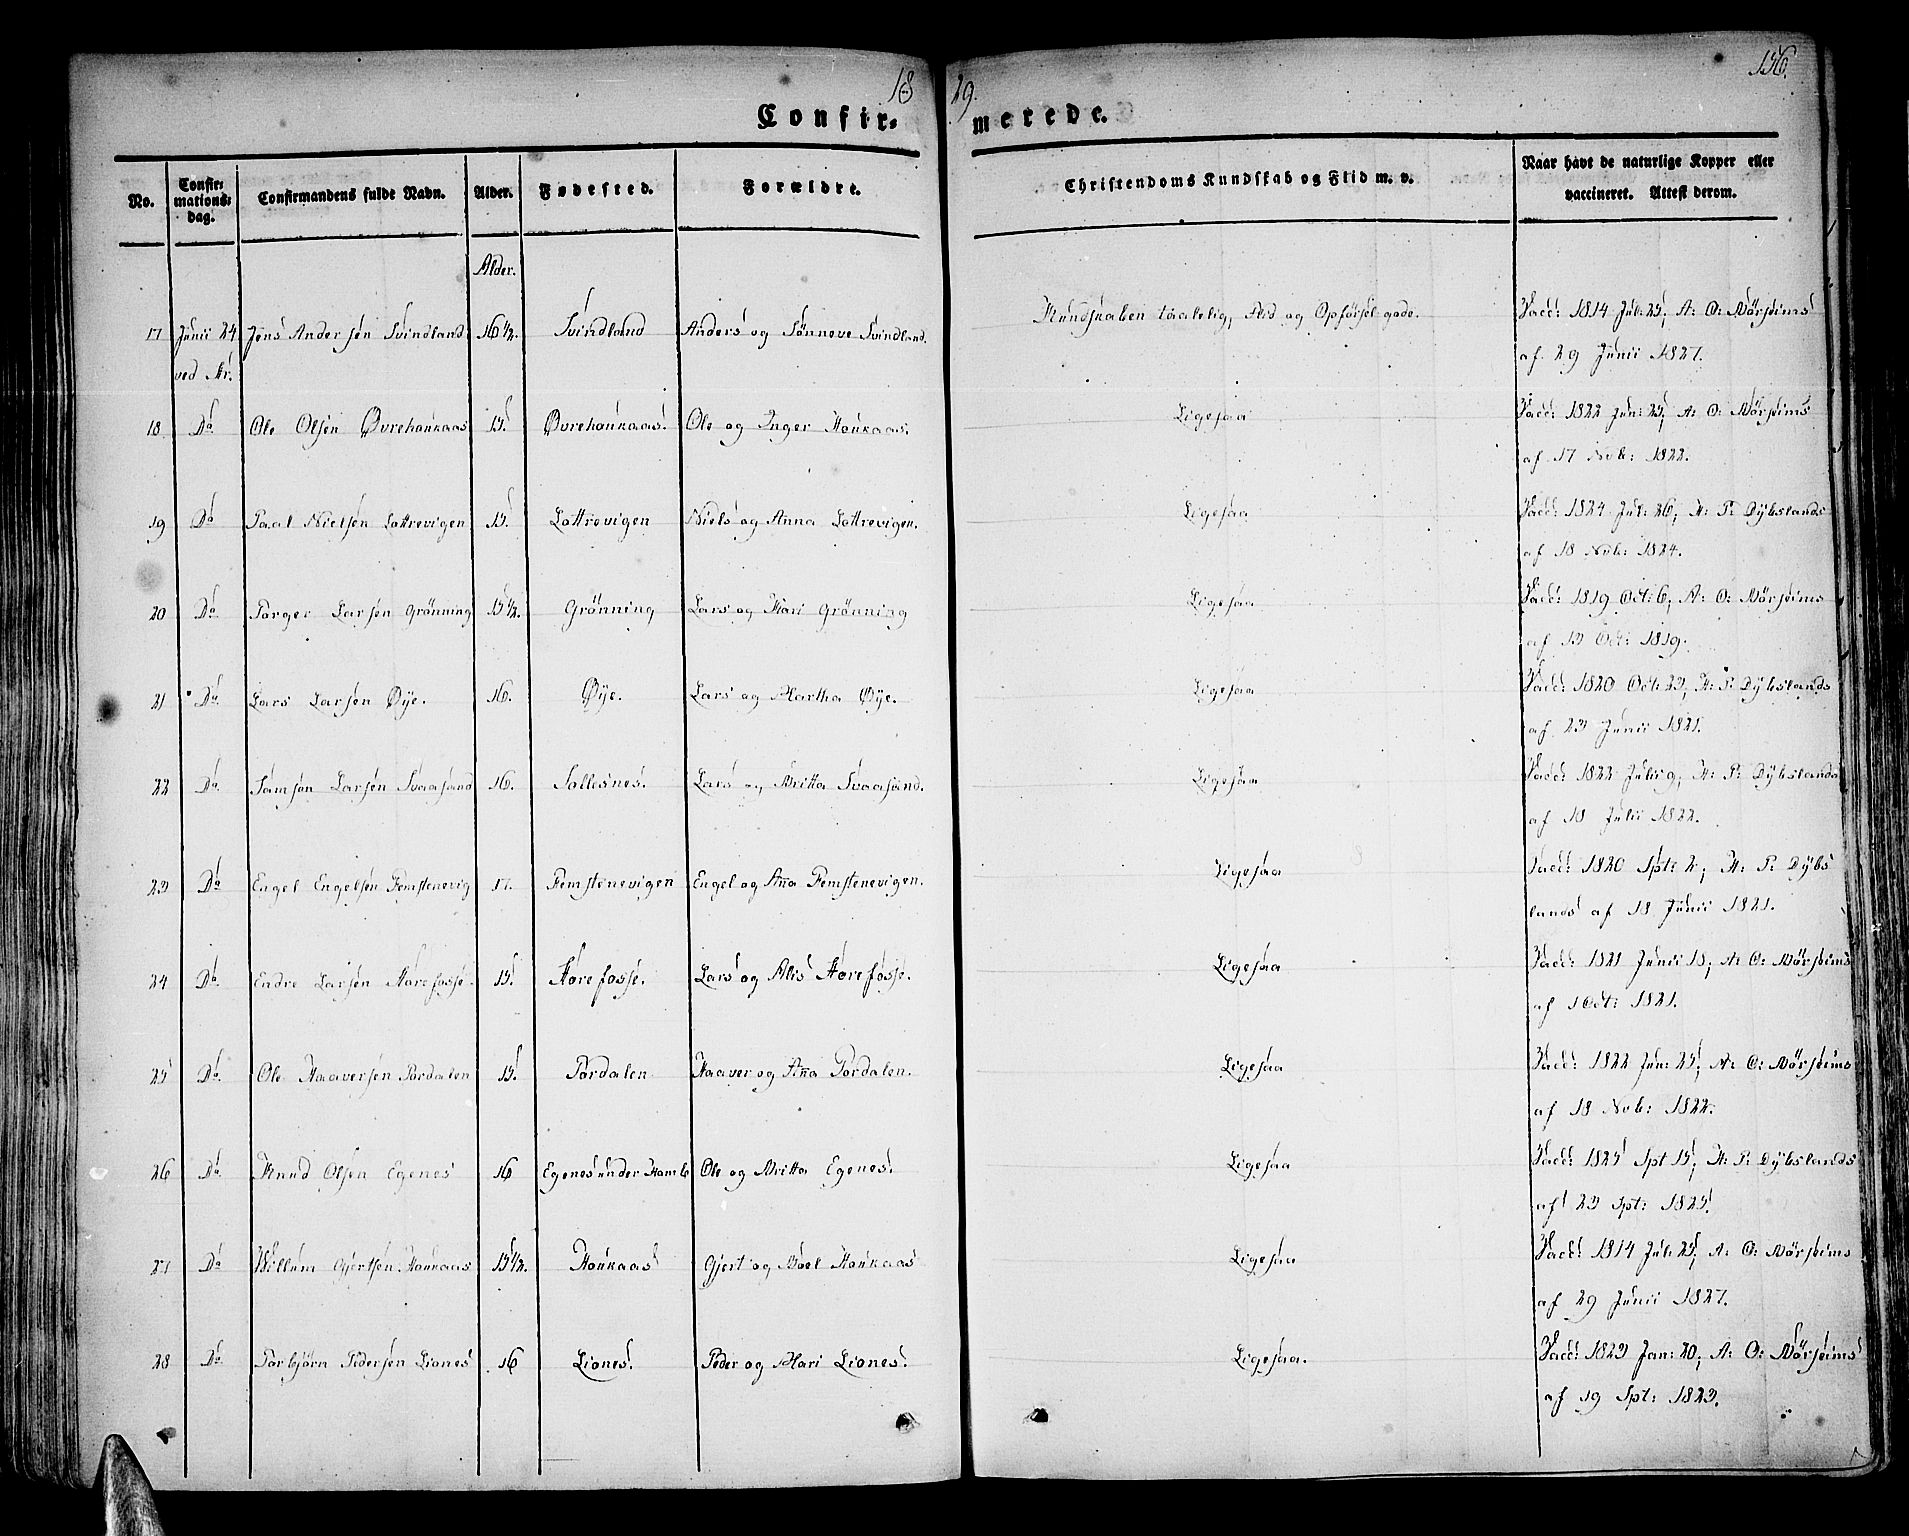 1829.
156.
Confirmerede.
No. Confirmationsdag. Confirmandens fulde Navn. Alder. Fødested. Forældre. Christendoms Kundskab og Flid m. v. Naar havt de naturlige Kopper eller vaccineret. Attest derom.
Alder.
17 Junii 24 Jens Andersen Svindland 16 1/2. Svindland Anders og Sønneve Svindland. Kundskaben taalelig, Flid og Opførsel gode. Vacc: 1814 Jul: 25, A: O: Nörstims
ved Kr. af 29 Junii 1827.
18 Do Ole Olsen Øvrehoukaas 15. Øvrehoukaas. Ole og Inger Houkaas. Ligesaa Vacc: 1822 Jun: 25, A: O: Nörstims
af 17 Nvb: 1822.
19 Do Paal Nielsen Lottrevigen 15. Lottrevigen Niels og Anna Lottrevigen. Ligesaa Vacc: 1824 Jul: 26, H: P: Dÿbslands
af 18 Nvb: 1824.
20 Do Torger Larsen Grönning 15 1/2. Grönning Lars og Kari Grönning Ligesaa Vacc: 1819 Oct: 6, A: O: Nörstims
af 13 Oct: 1819.
21 Do Lars Larsen Øÿe. 16. Øÿe. Lars og Martha Øÿe. Ligesaa Vacc: 1820 Oct: 23, H: P: Dÿbslands
af 23 Junii 1821.
22 Do Samson Larsen Svaasand 16. Sallesnes. Lars og Britta Svaasand. Ligesaa Vacc: 1822 Julii 9, H: P: Dÿbslands
af 18 Julii 1822.
23 Do Engel Engelsen Femstenevig 17. Femstenevigen Engel og Anna Femstenevigen. Ligesaa Vacc: 1820 Spt: 2, H: P: Dÿbs
lands af 18 Junii 1821.
24 Do Endre Larsen Horefosse. 15. Horefosse. Lars og Alis Horefosse. Ligesaa Vacc: 1821 Junii 18, A: O: Nörstims
af 1 Oct: 1821.
25 Do. Ole Haaversen Tordalen 15. Tordalen Haaver og Anna Tordalen. Ligesaa Vacc: 1822 Jun: 25, A: O: Nörstims
af 18 Nvb: 1822.
26 Do Knud Olsen Egenes 16 Egenes under Ole og Britta Egenes. Ligesaa Vacc: 1825 Spt 15, H: P: Dÿbslands
af 23 Spt: 1825.
27 Do Willum Gjertsen Houkaas 15 1/2. Houkaas Gjert og Boel Houkaas Ligesaa Vacc: 1814 Jul: 25, A: O: Nörstims
af 29 Junii 1827.
28 Do Torbjörn Pedersen Liones 16 Liones. Peder og Mari Liones. Ligesaa. Vacc: 1823 Jan: 20, A: O: Nörstims
af 19 Spt: 1823.